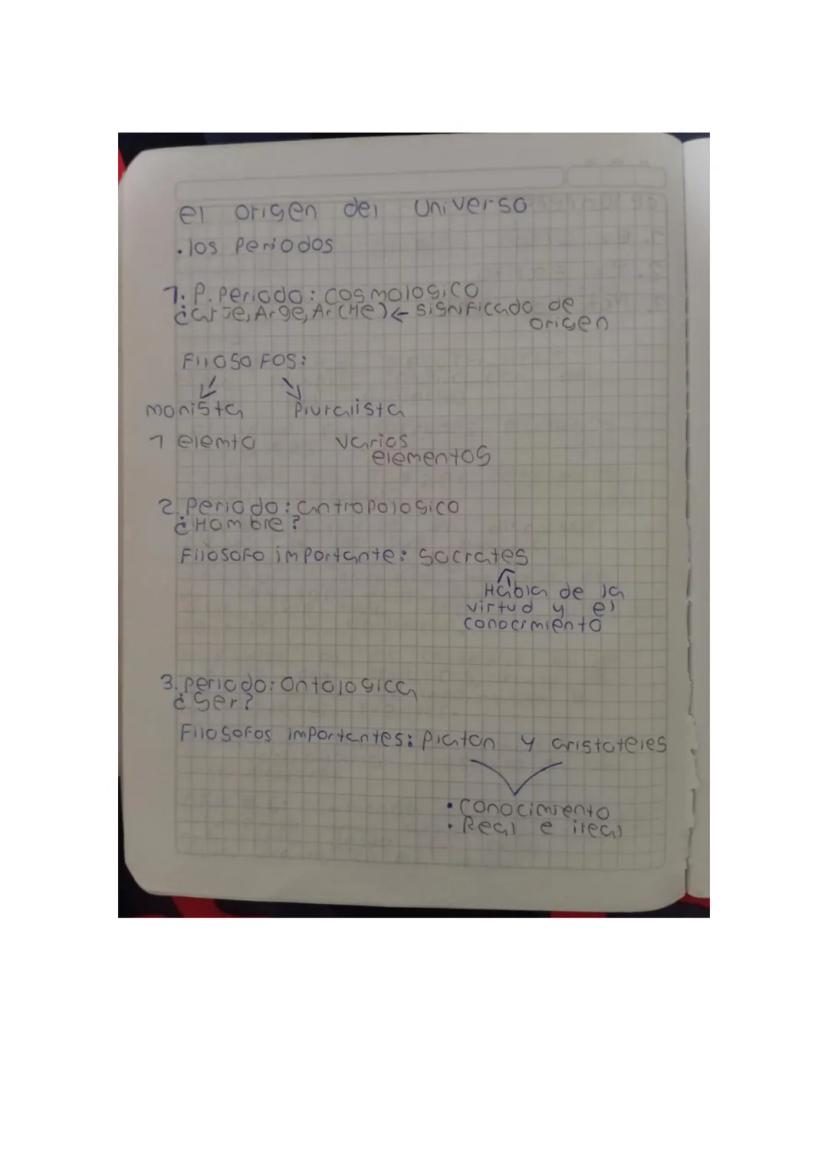 el origen del universo
• los periodos
1. P. periodo: cosmologico
¿Arje, Arge, ArcHe) ← significado de
origen
Filosofos:
monista Pluralista
1 elemto varios
elementos
2. periodo: antropologico
¿Hombre?
Filosofo importante: Socrates
Habla de la
virtud y el
conocimiento
3. periodo: Ontologica
¿Ser?
Filosofos importantes: Platon y aristoteles
• conocimiento
• Real e ireal